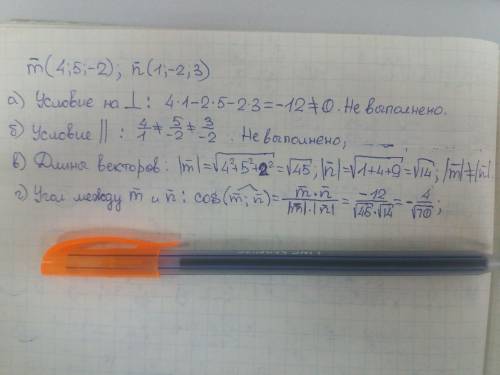 m̄(4;5;-2); n̄(1;-2;3)
а) Условие на ⊥: 4·1-2·5-2·3=-12≠0. Не выполнено.
б) Условие ||: 4/1 ≠ 5/-2 ≠ 3/-2. Не выполнено;
в) Длина векторов. |m̄|=√4²+5²+2²=√45; |n̄|=√1+4+9=√14; |m̄|≠|n̄|
г) Угол между m̄ и n̄: cos(m̄;n̄)= m̄·n̄/|m̄|·|n̄| = -12/√45·√14 = -4/√70;